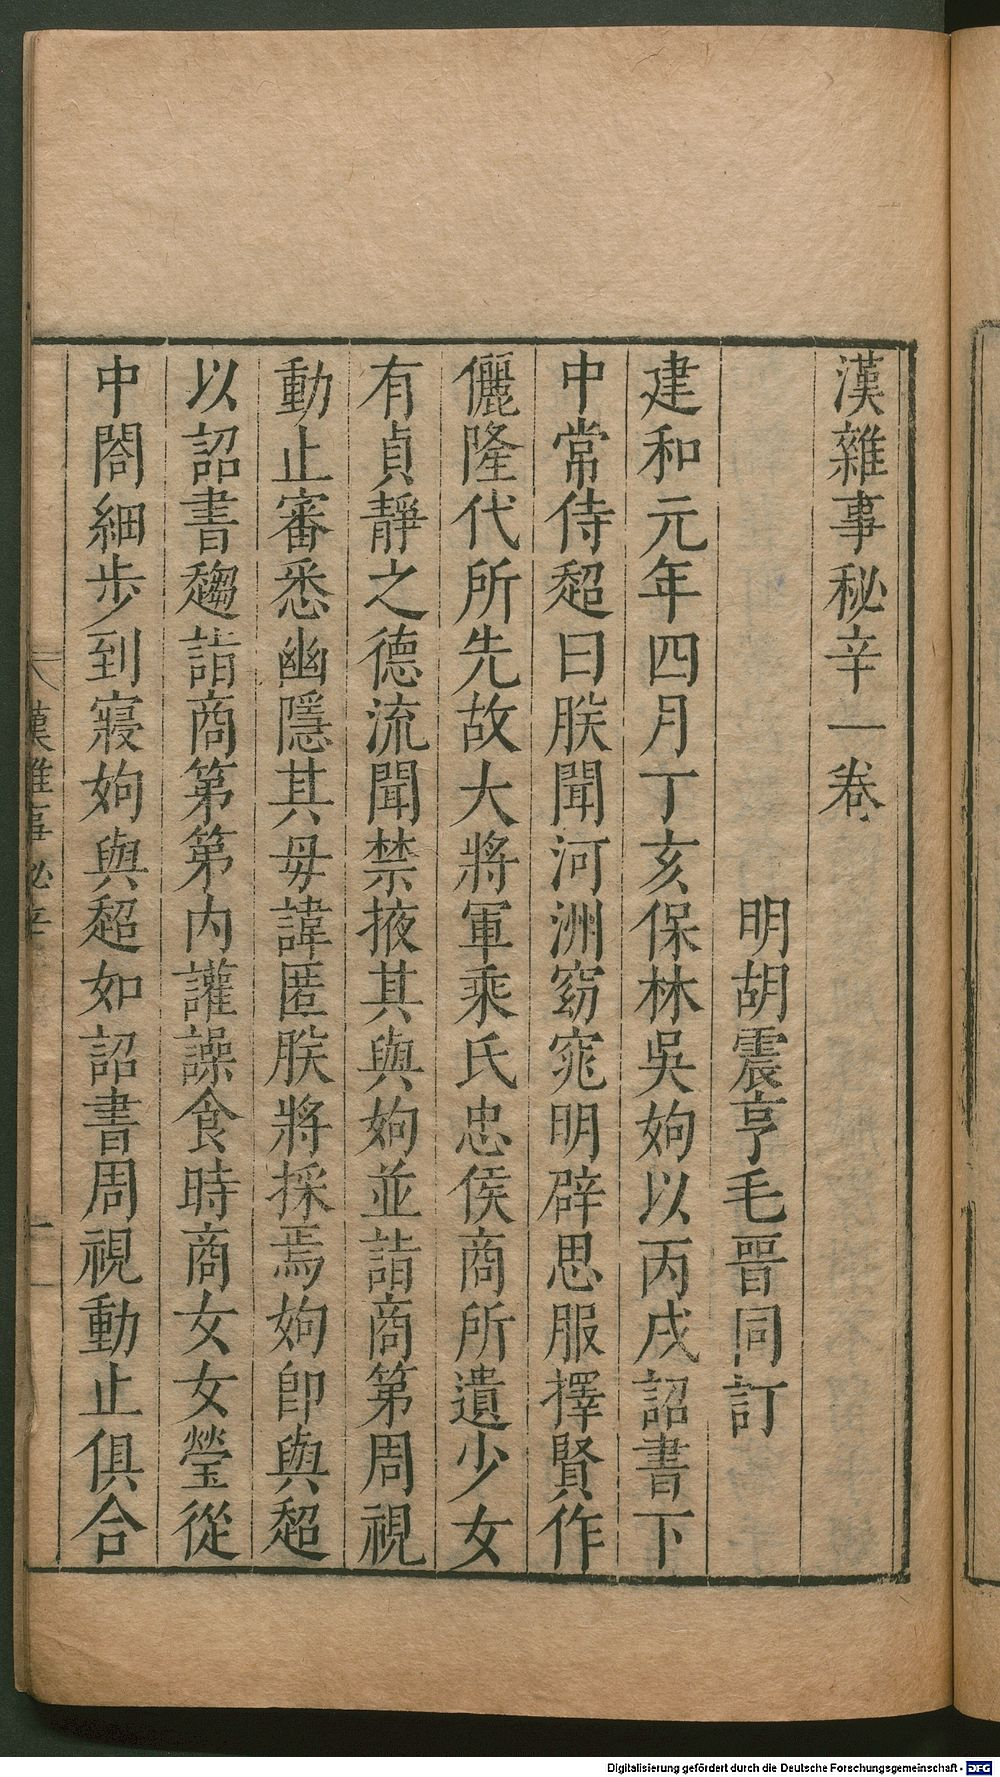 漢雜事秘辛一卷
明胡震亨毛晉同訂
建和元年四月丁亥保林吳姁以丙戌詔書下
中常侍超曰朕聞河洲窈窕明辟思服擇賢作
儷隆代所先故大將軍乘氏忠侯商所遺少女
有貞靜之德流聞禁掖其與姁並詣商第周視
動止審悉幽隱其毋諱匿朕將採焉姁卽與超
以詔書趨詣商第第内讙譟食時商女女瑩從
中閤細步到寢姁與超如詔書周視動止俱合
漢雜事秘辛
一
Digitalisierung gefördert durch die Deutsche Forschungsgemeinschaft - DFG